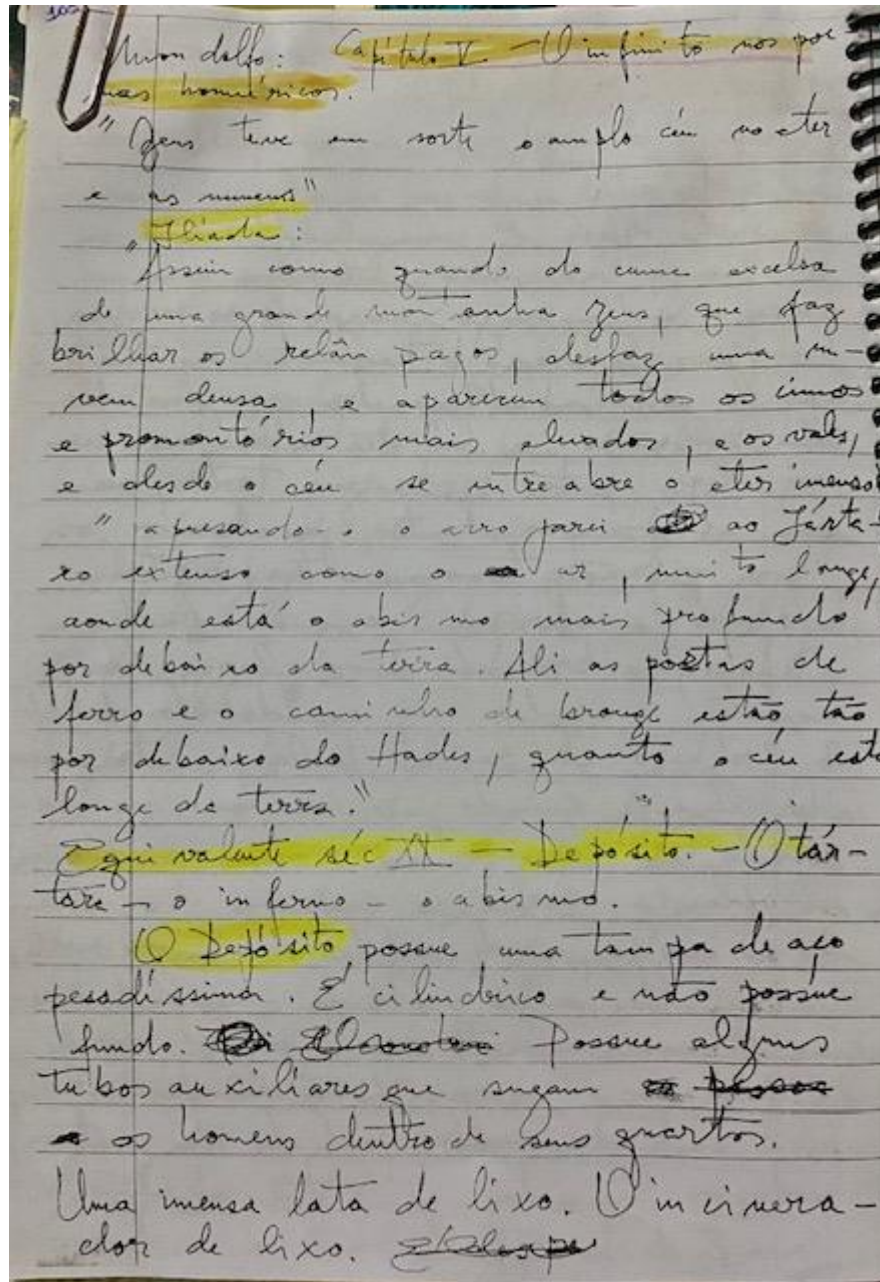 102
Mondolfo: Capítulo V - O infinito nos poe-
mas homéricos.
"Zeus teve em sorte o amplo céu no eter
e as nuvens"
Ilíada:
"Assim como quando do cume excelso
de uma grande montanha Zeus, que faz
brilhar os relâmpagos, desfaz uma nu-
vem densa, e aparecem todos os cumes
e promontórios mais elevados, e os vales,
e desde o céu se entreabre o eter imenso
"apresando-o o arrojarei ao Tárta-
ro extenso como o ar, muito longe,
aonde está o abismo mais profundo
por debaixo da terra. Ali as portas de
ferro e o caminho de bronze estão tão
por debaixo do Hades, quanto o céu está
longe da terra."
Equivalente séc XX - Depósito. - O tár-
taro - o inferno - o abismo.
O Depósito possue uma tampa de aço
pesadíssima. É cilindrico e não possue
fundo. Possue alguns
tubos auxiliares que sugam
os homens dentro de seus quartos.
Uma imensa lata de lixo. O incinera-
dor de lixo.